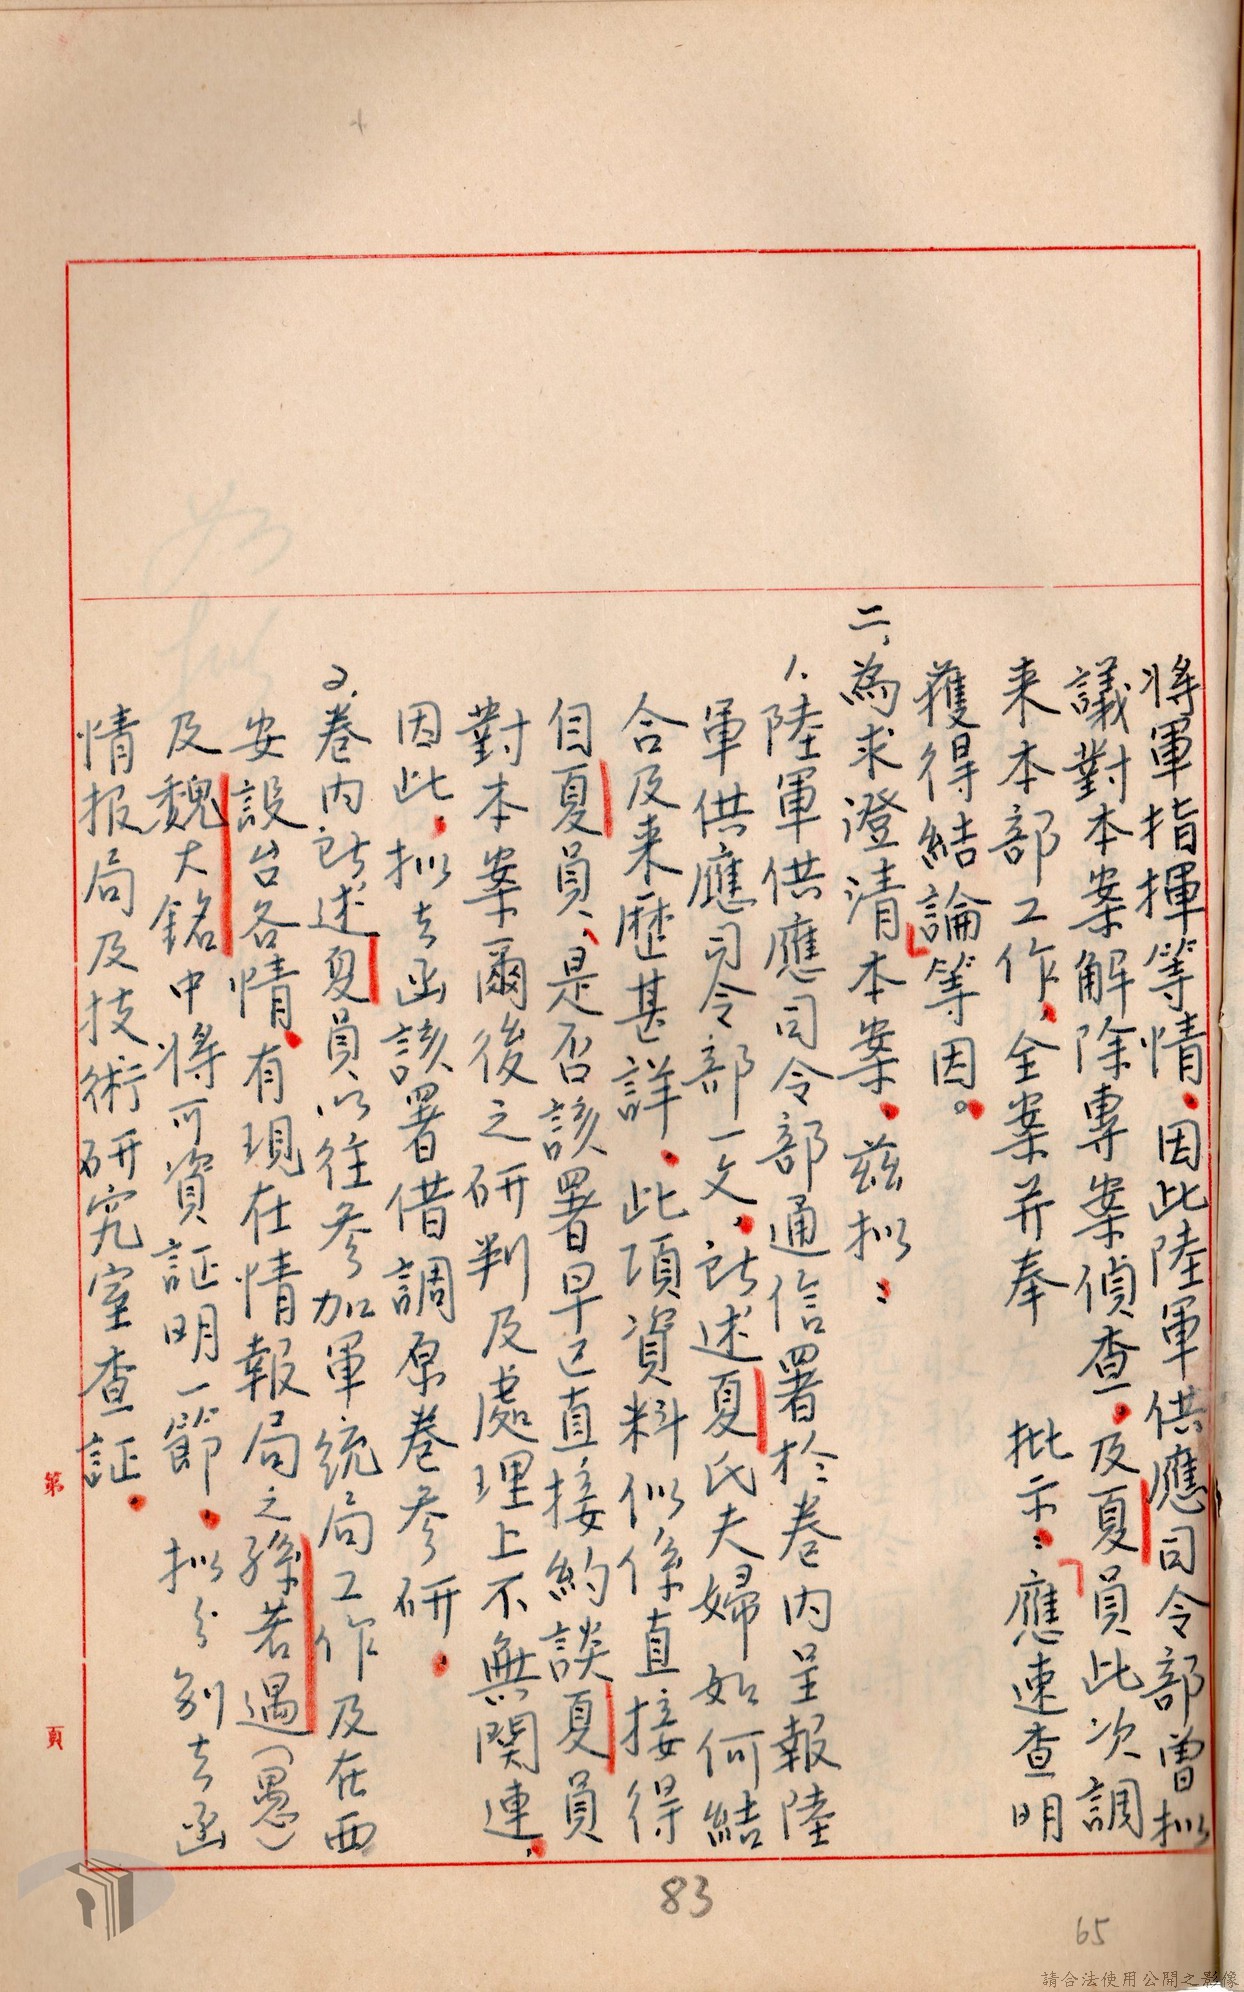 将軍指揮等情，因此陸軍供應司令部曾拟
議對本案解除專案偵查，及夏員此次調
来本部工作，全案并奉　批示：「應速查明
獲得結論」等因。
二、為求澄清本案，茲拟：
1.陸軍供應司令部通信署於卷内呈報陸
軍供應司令部一文，所述夏氏夫婦如何結
合及来歷甚詳，此項資料似係直接得
自夏員，是否該署早已直接約談夏員
對本案爾後之研判及處理上不無関連，
因此，拟去函該署借調原卷参研。
2.卷内所述夏員以往参加軍統局工作及在西
安設台各情，有現在情報局之孫若遇（愚）
及魏大銘中将可資証明一節，拟分别去函
情报局及技術研究室查証。
第
頁
83
65
請合法使用公開之影像